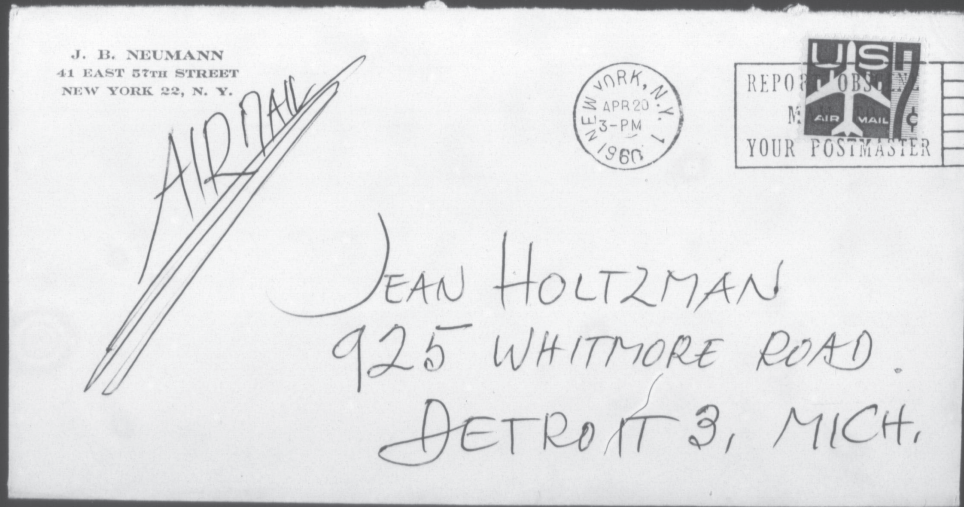 J. B. NEUMANN
41 EAST 57TH STREET
NEW YORK 22, N. Y.
AIR MAIL
NEW YORK, N.Y. 1
APR 20
3-PM
1960
REPORT OBSCENE
MAIL TO
YOUR POSTMASTER
US
7¢
AIR MAIL
JEAN HOLTZMAN
925 WHITMORE ROAD.
DETROIT 3, MICH.